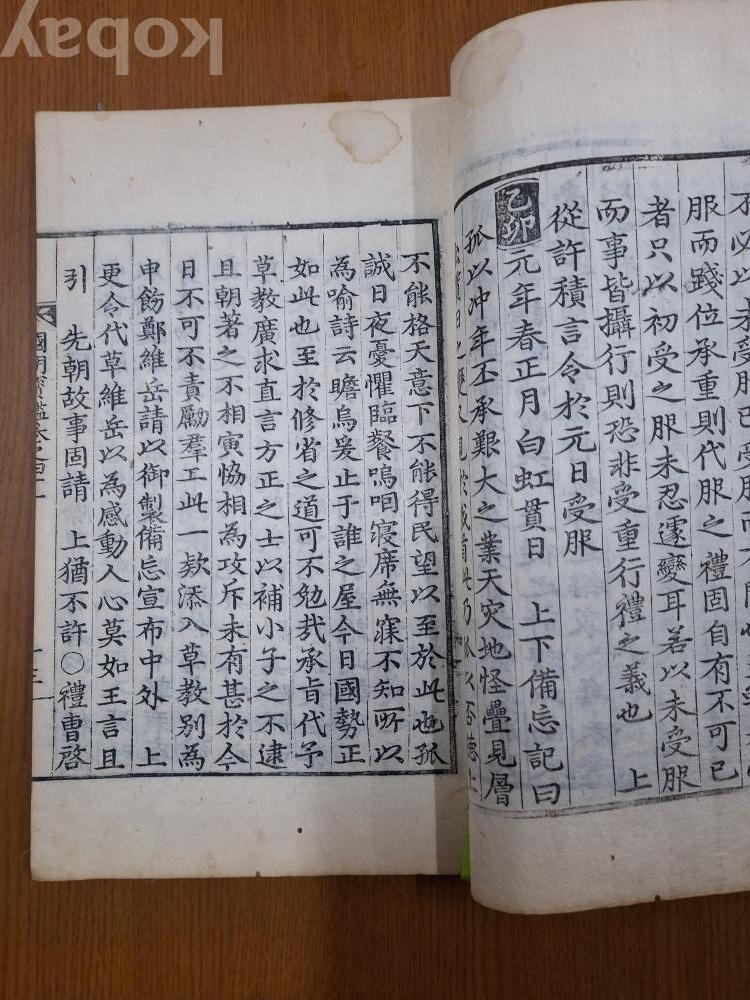 kobay
不
服而踐位承重則代服之禮固自有不可已
者只以初受之服未忍遽變耳若以未受服
而事皆攝行則恐非受重行禮之義也 上
從許積言令於元日受服
乙卯元年春正月白虹貫日 上下備忘記曰
孤以沖年丕承艱大之業天灾地怪疊見層
不能格天意下不能得民望以至於此也孤
誠日夜憂懼臨餐嗚咽寢席無寐不知所以
為喻詩云瞻烏爰止于誰之屋今日國勢正
如此也至於修省之道可不勉㢤承旨代予
草教廣求直言方正之士以補小子之不逮
且朝著之不相寅恊相為攻斥未有甚於今
日不可不責勵羣工此一欵添入草教別為
申飭鄭維岳請以御製備忘宣布中外 上
更令代草維岳以為感動人心莫如王言且
引 先朝故事固請 上猶不許○禮曹啓
國朝寶鑑卷之四十